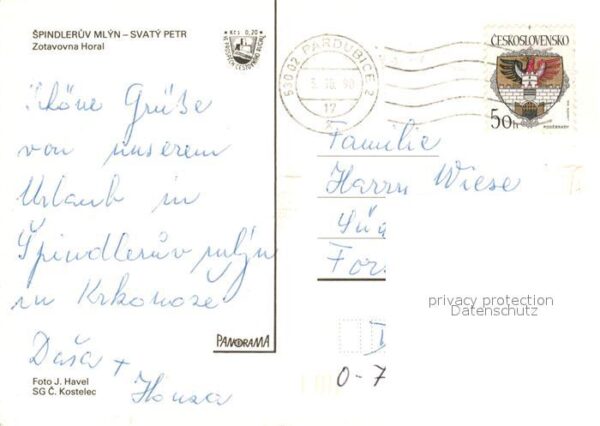 ŠPINDLERŮV MLÝN – SVATÝ PETR
Zotavovna Horal
Kčs 0,20
530 02 PARDUBICE 2
5. 10. 90
17
ČESKOSLOVENSKO
50h
PODĚBRADY
Schöne Grüße
von unserem
Urlaub in
Špindlerův mlýn
in Krkonoše
Daša +
Honza
Familie
Harry Wiese
privacy protection
Datenschutz
PANORAMA
O-7
Foto J. Havel
SG Č. Kostelec